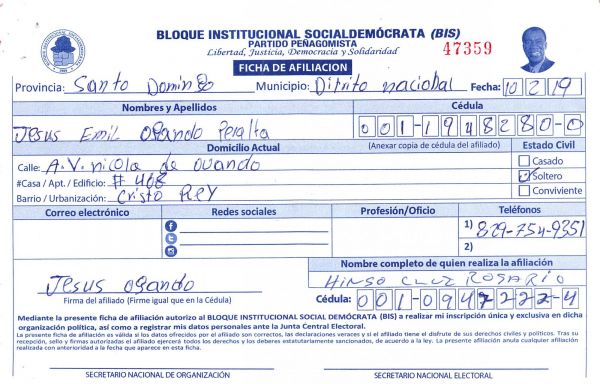 BLOQUE INSTITUCIONAL SOCIALDEMÓCRATA (BIS)
PARTIDO PEÑAGOMISTA
Libertad, Justicia, Democracia y Solidaridad
47359
FICHA DE AFILIACION
Provincia: Santo Domingo Municipio: Ditrito nacional Fecha: 10 2 19
Nombres y Apellidos Cédula
Jesus Emil Ogando Peralta 001-1948280-0
Domicilio Actual (Anexar copia de cédula del afiliado) Estado Civil
Calle: A.V. nicola de ovando Casado
#Casa / Apt. / Edificio: # 468 Soltero
Barrio / Urbanización: Cristo Rey Conviviente
Correo electrónico Redes sociales Profesión/Oficio Teléfonos
1) 829-754-9351
2)
Nombre completo de quien realiza la afiliación
Jesus ogando CRUZ ROSARIO
Firma del afiliado (Firme igual que en la Cédula) Cédula: 001-0947222-4
Mediante la presente ficha de afiliación autorizo al BLOQUE INSTITUCIONAL SOCIAL DEMÓCRATA (BIS) a realizar mi inscripción única y exclusiva en dicha
organización política, así como a registrar mis datos personales ante la Junta Central Electoral.
La presente ficha de afiliación es válida si los datos ofrecidos por el afiliado son correctos, las declaraciones veraces y si el afiliado tiene el disfrute de sus derechos civiles y políticos. Tras su
recepción, sello y firmas autorizadas el afiliado ejercerá todos los derechos y los deberes estatutariamente sancionados, de acuerdo a la ley. La presente afiliación anula cualquier afiliación
realizada con anterioridad a la fecha que aparece en esta ficha.
SECRETARIO NACIONAL DE ORGANIZACIÓN SECRETARIO NACIONAL ELECTORAL